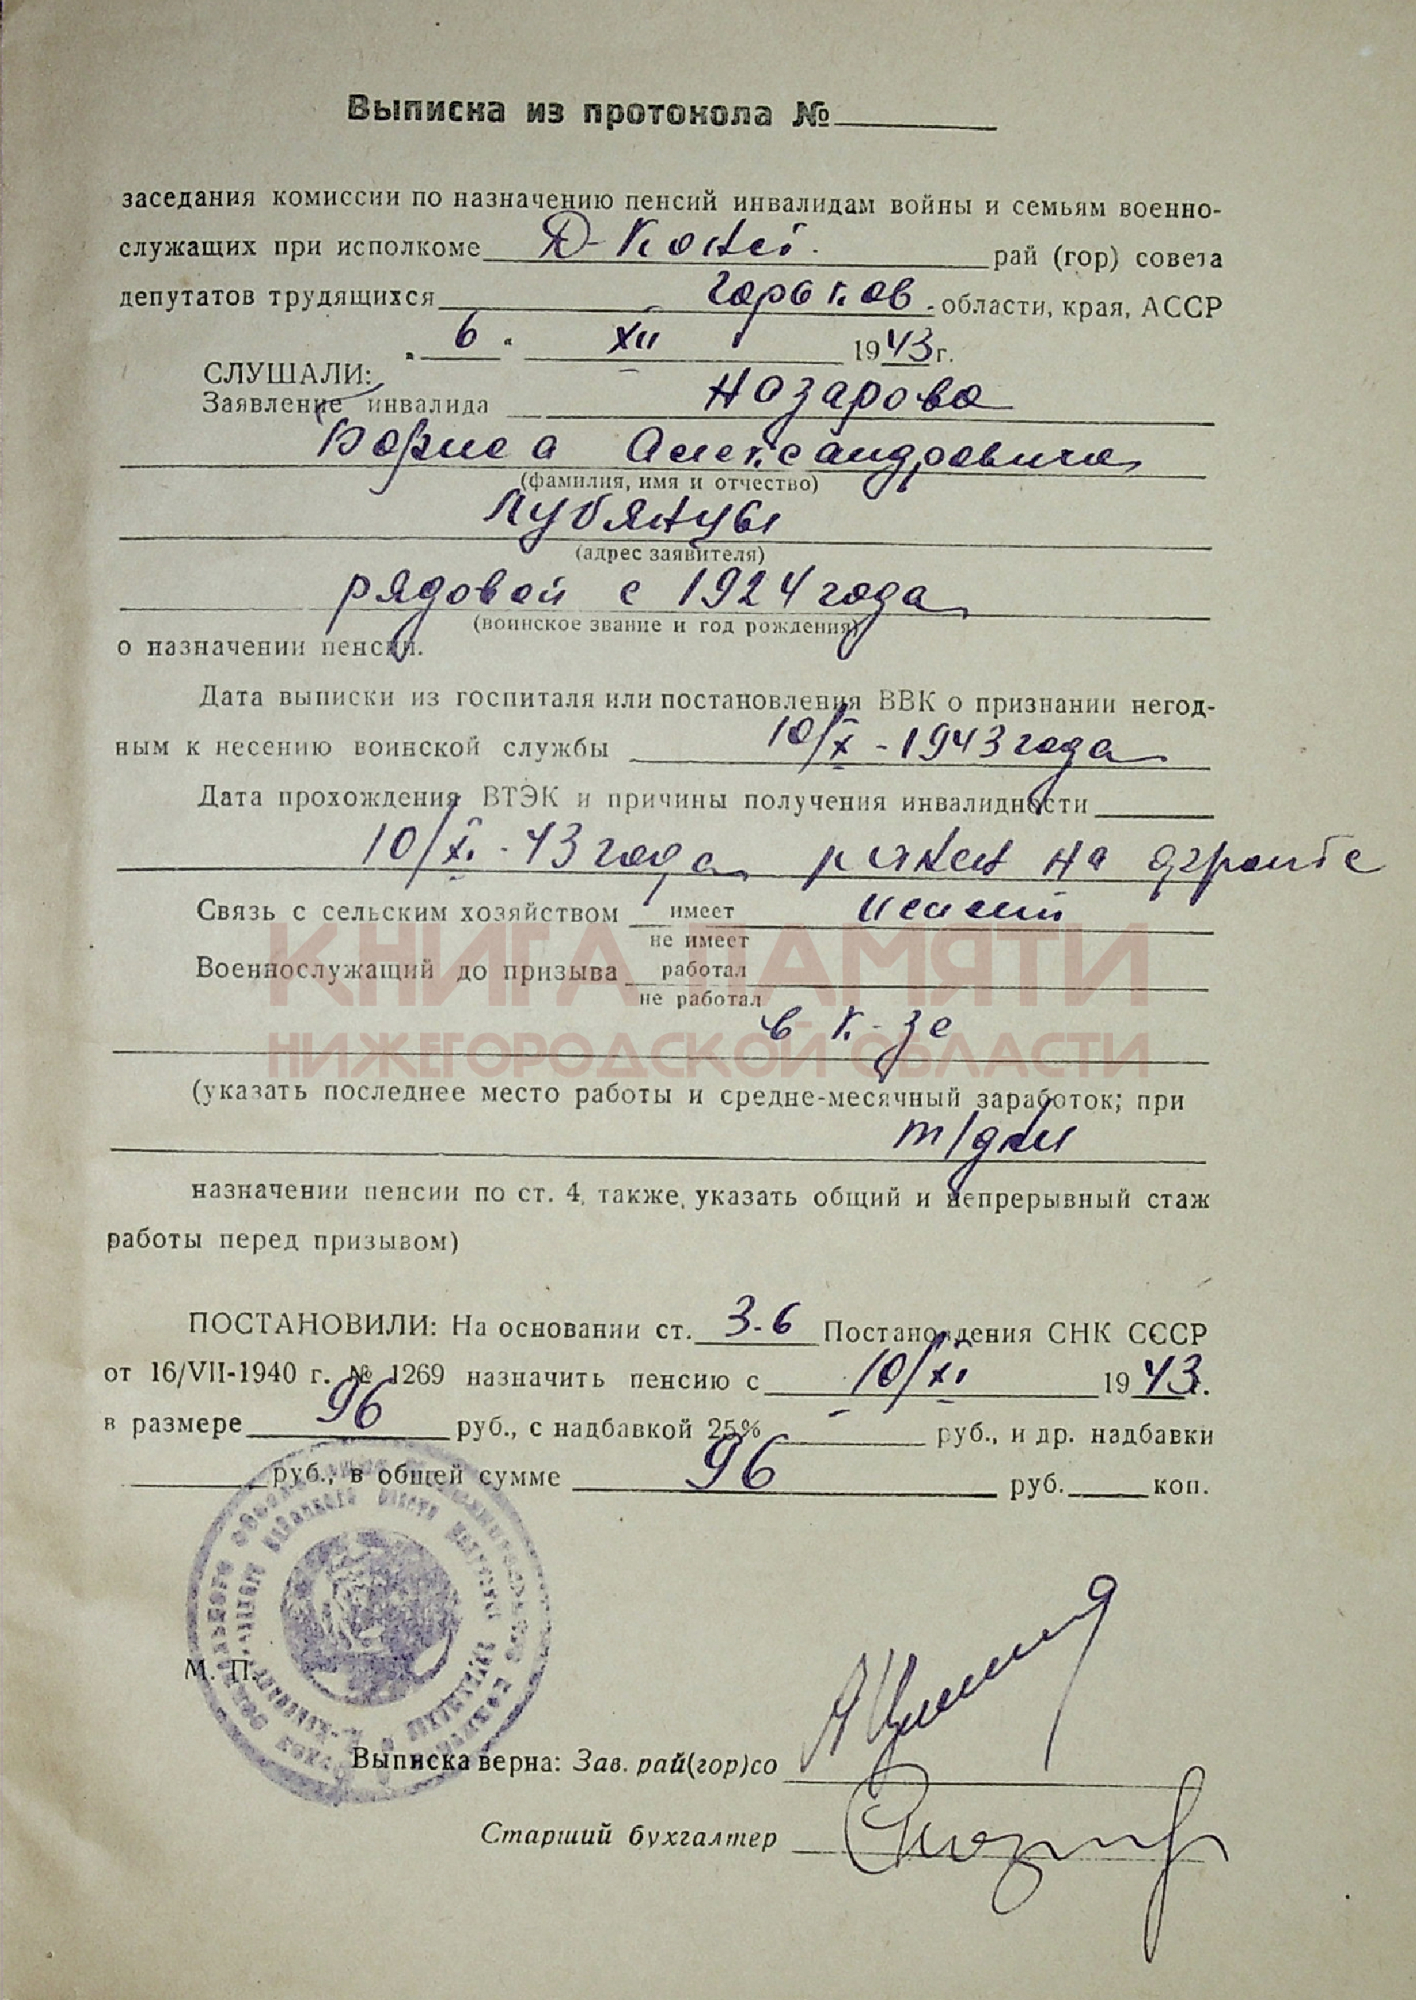 Выписка из протокола №
заседания комиссии по назначению пенсий инвалидам войны и семьям военно-
служащих при исполкоме Д-Конст. рай (гор) совета
депутатов трудящихся Горьков. области, края, АССР
" 6 " XII 1943г.
СЛУШАЛИ:
Заявление инвалида Назарова
Бориса Александровича
(фамилия, имя и отчество)
Лубянцы
(адрес заявителя)
рядовой с 1924 года
(воинское звание и год рождения)
о назначении пенсии.
Дата выписки из госпиталя или постановления ВВК о признании негод-
ным к несению воинской службы 10/X - 1943 года
Дата прохождения ВТЭК и причины получения инвалидности
10/XI - 43 года ранен на фронте
Связь с сельским хозяйством имеет
не имеет
Военнослужащий до призыва работал
не работал
в к-зе
(указать последнее место работы и средне-месячный заработок; при
т/дни
назначении пенсии по ст. 4, также, указать общий и непрерывный стаж
работы перед призывом)
ПОСТАНОВИЛИ: На основании ст. 3-б Постановления СНК СССР
от 16/VII-1940 г. № 1269 назначить пенсию с 10/XI 1943г.
в размере 96 руб., с надбавкой 25% руб., и др. надбавки
руб., в общей сумме 96 руб. коп.
М. П.
Выписка верна: Зав. рай(гор)со
Старший бухгалтер
КНИГА ПАМЯТИ
НИЖЕГОРОДСКОЙ ОБЛАСТИ